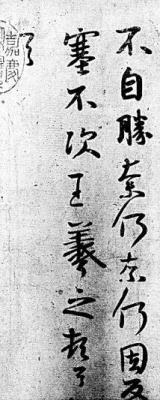 不自勝奈何奈何因反
塞不次王羲之頓首
嘉慶